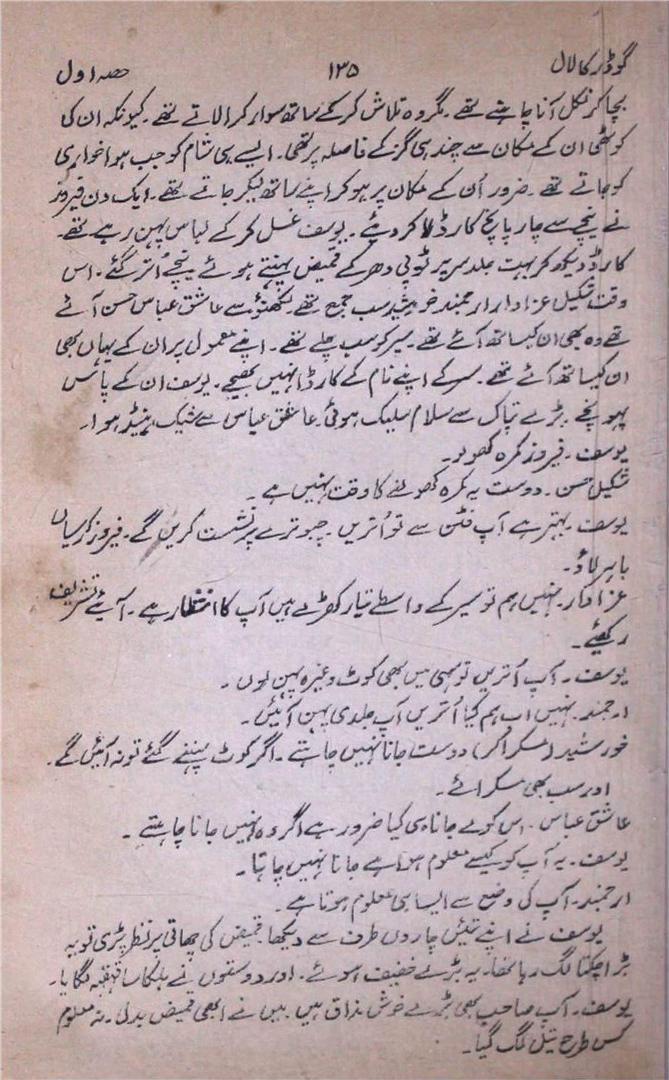 گودڑ کا لال ۱۳۵ حصہ اول
بچا کر نکل آنا چاہتے تھے۔ مگر وہ تلاش کر کے ساتھ سوار کرا لاتے تھے۔ کیونکہ ان کی
کوٹھی ان کے مکان سے چند ہی گز کے فاصلہ پر تھی۔ ایسے ہی شام کو جب ہوا خواری
کو جاتے تھے۔ ضرور اُن کے مکان پر ہو کر اپنے ساتھ لیکر جاتے تھے۔ ایک دن فیروز
نے نیچے سے چار پانچ کارڈ لا کر دیئے۔ یوسف غسل کر کے لباس پہن رہے تھے۔
کارڈ دیکھ کر بہت جلد سر پر ٹوپی دھر کے قمیض پہنتے ہوئے نیچے اُتر گئے۔ اس
وقت شکیل عزادار ارجمند خورشید سب جمع تھے۔ لکھنؤ سے عاشق عباس حسن آئے
تھے وہ بھی ان کیساتھ آئے تھے۔ سیر کو سب چلے تھے۔ اپنے معمول پر ان کے یہاں بھی
ان کیساتھ آئے تھے۔ سر کے اپنے نام کے کارڈ انہیں بھیجے۔ یوسف ان کے پاس
پہونچے بڑے تپاک سے سلام سلیک ہوئی۔ عاشق عباس سے شیک ہینڈ ہوا۔
یوسف۔ فیروز کمرہ کھولو۔
شکیل حسن۔ دوست یہ کمرہ کھولنے کا وقت نہیں ہے۔
یوسف۔ بہتر ہے آپ فٹن سے تو اُتریں۔ چبوترے پر نشست کریں گے۔ فیروز کرسیاں
باہر لاؤ۔
عزادار۔ نہیں ہم تو سیر کے واسطے تیار کھڑے ہیں آپ کا انتظار ہے۔ آئیے تشریف
رکھئے۔
یوسف۔ آپ اُتریں تو سہی میں بھی کوٹ وغیرہ پہن لوں۔
ارجمند۔ نہیں اب ہم کیا اُتریں آپ جلدی پہن آئیں۔
خورشید (مسکرا کر) دوست جانا نہیں چاہتے۔ اگر کوٹ پہننے گئے تو نہ آئیں گے۔
اور سب بھی مسکرائے۔
عاشق عباس۔ اس کو لے جانا ہی کیا ضرور ہے اگر وہ نہیں جانا چاہتے۔
یوسف۔ یہ آپ کو کیسے معلوم ہوا ہے جانا نہیں چاہتا۔
ارجمند۔ آپ کی وضع سے ایسا ہی معلوم ہوتا ہے۔
یوسف نے اپنے تئیں چاروں طرف سے دیکھا۔ قمیض کی چھاتی پر نظر پڑی تو یہ
بڑا چکتا لگ رہا تھا۔ یہ بڑے خفیف ہوئے۔ اور دوستوں نے ہلکا سا قہقہہ لگایا۔
یوسف۔ آپ صاحب بھی بڑے خوش مذاق ہیں۔ میں نے ابھی قمیض بدلی۔ نہ معلوم
کس طرح تیل لگ گیا۔